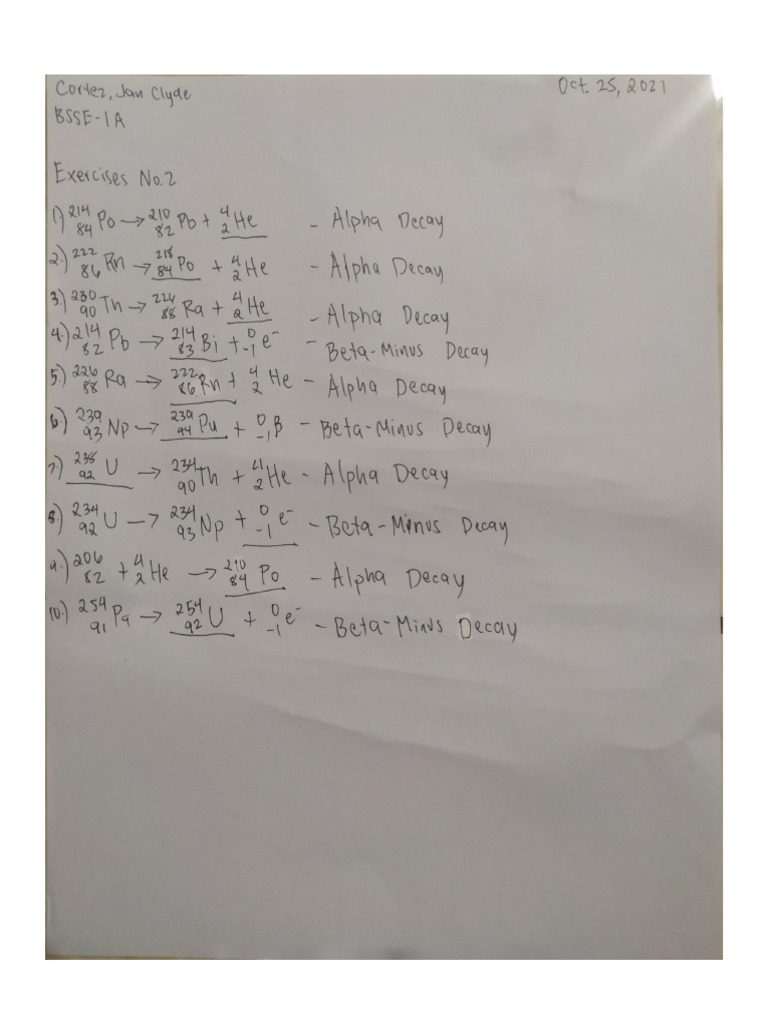 Cortez, Jan Clyde Oct 25, 2021
BSSE-1A
Exercises No.2
1) ²¹⁴₈₄Po → ²¹⁰₈₂Pb + ⁴₂He - Alpha Decay
2.) ²²²₈₆Rn → ²¹⁸₈₄Po + ⁴₂He - Alpha Decay
3.) ²³⁰₉₀Th → ²²⁶₈₈Ra + ⁴₂He - Alpha Decay
4.) ²¹⁴₈₂Pb → ²¹⁴₈₃Bi + ⁰₋₁e⁻ - Beta-Minus Decay
5.) ²²⁶₈₈Ra → ²²²₈₆Rn + ⁴₂He - Alpha Decay
6.) ²³⁹₉₃Np → ²³⁹₉₄Pu + ⁰₋₁B - Beta-Minus Decay
7.) ²³⁸₉₂U → ²³⁴₉₀Th + ⁴₂He - Alpha Decay
8.) ²³⁴₉₂U → ²³⁴₉₃Np + ⁰₋₁e⁻ - Beta-Minus Decay
9.) ²⁰⁶₈₂ + ⁴₂He → ²¹⁰₈₄Po - Alpha Decay
10.) ²⁵⁴₉₁Pa → ²⁵⁴₉₂U + ⁰₋₁e⁻ - Beta-Minus Decay